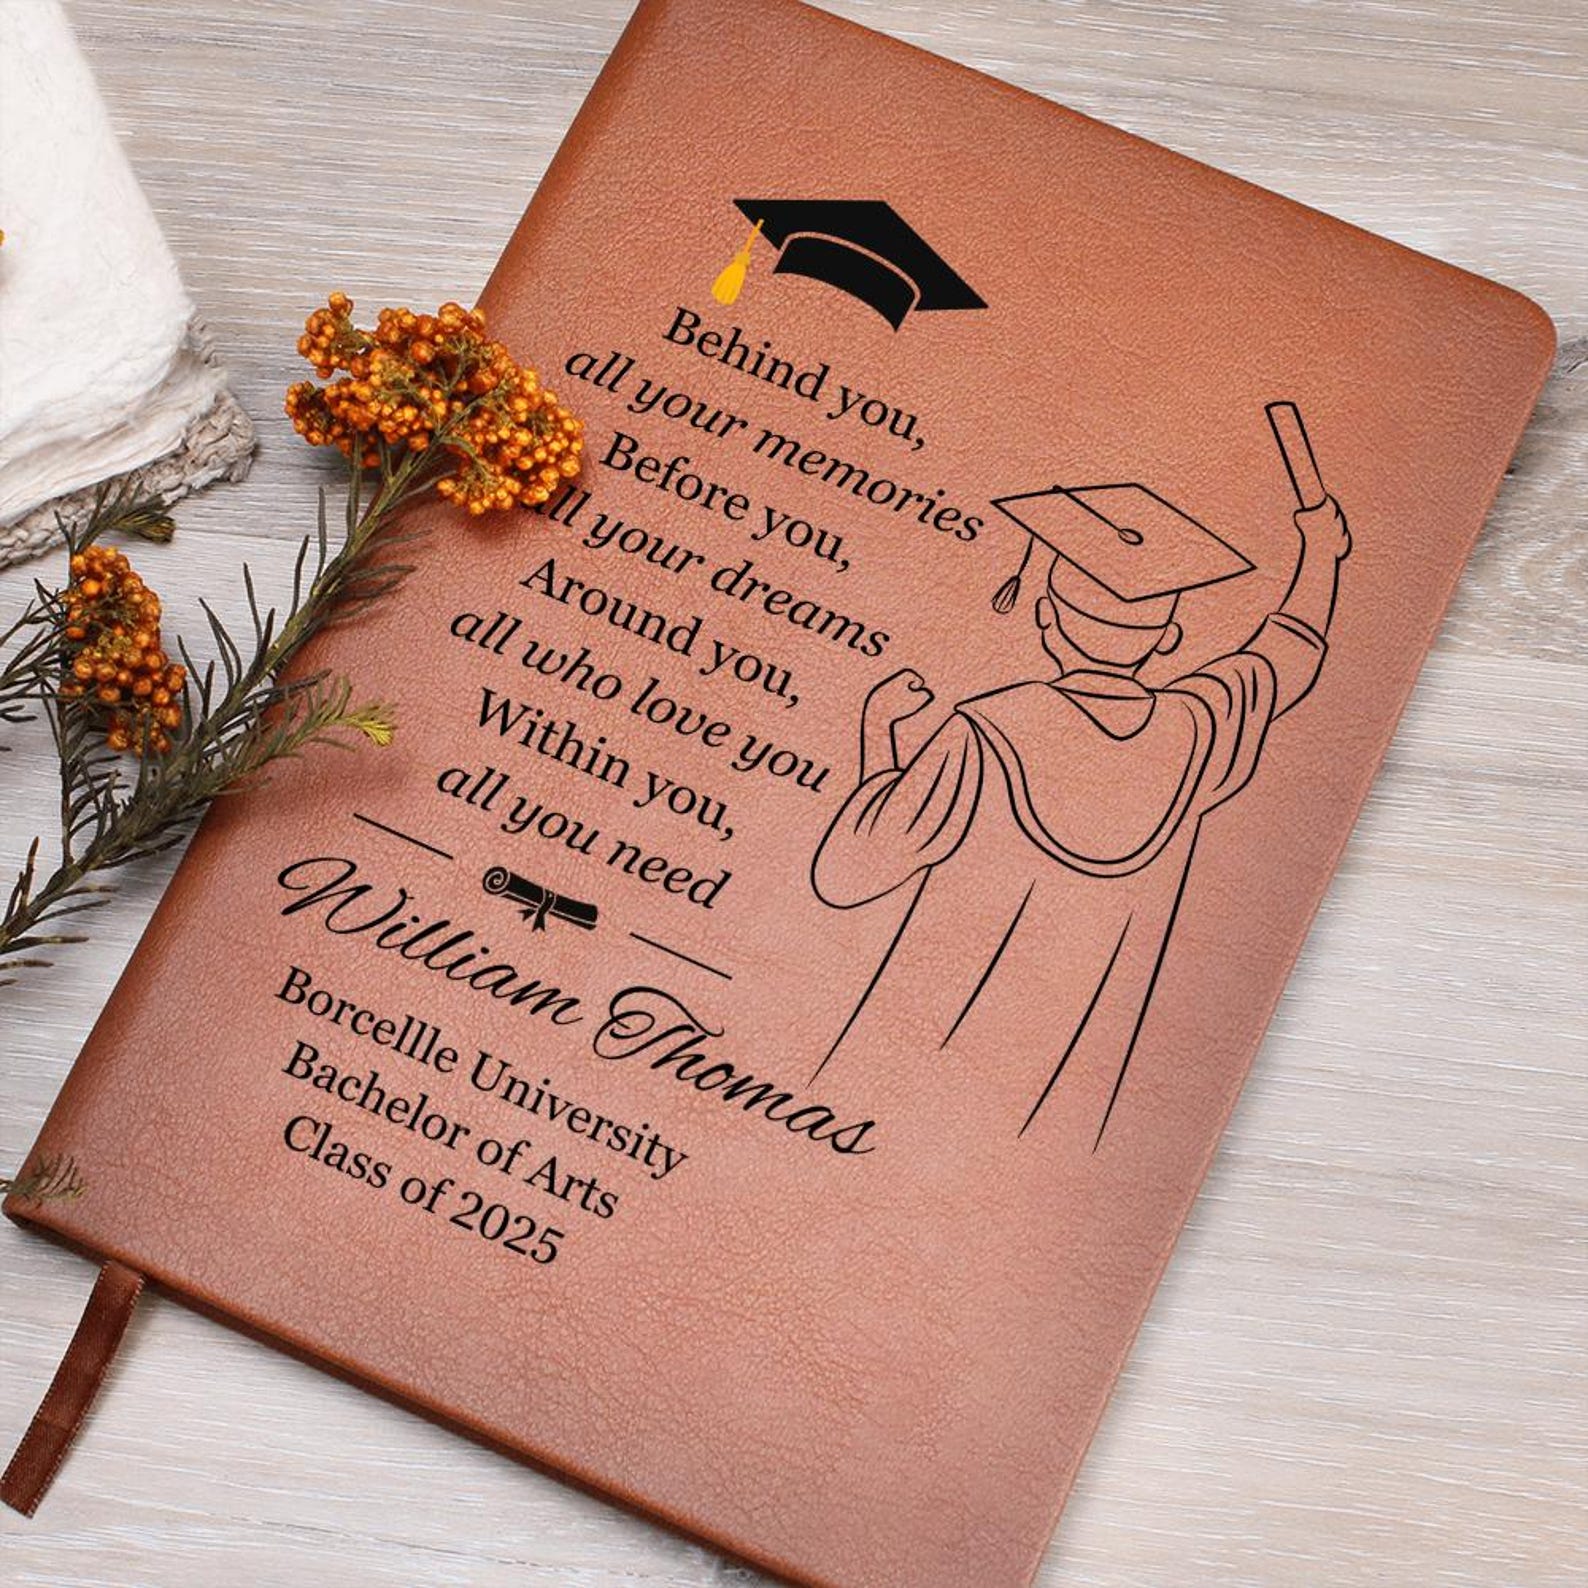 Behind you,
all your memories
Before you,
all your dreams
Around you,
all who love you
Within you,
all you need
William Thomas
Borcellle University
Bachelor of Arts
Class of 2025